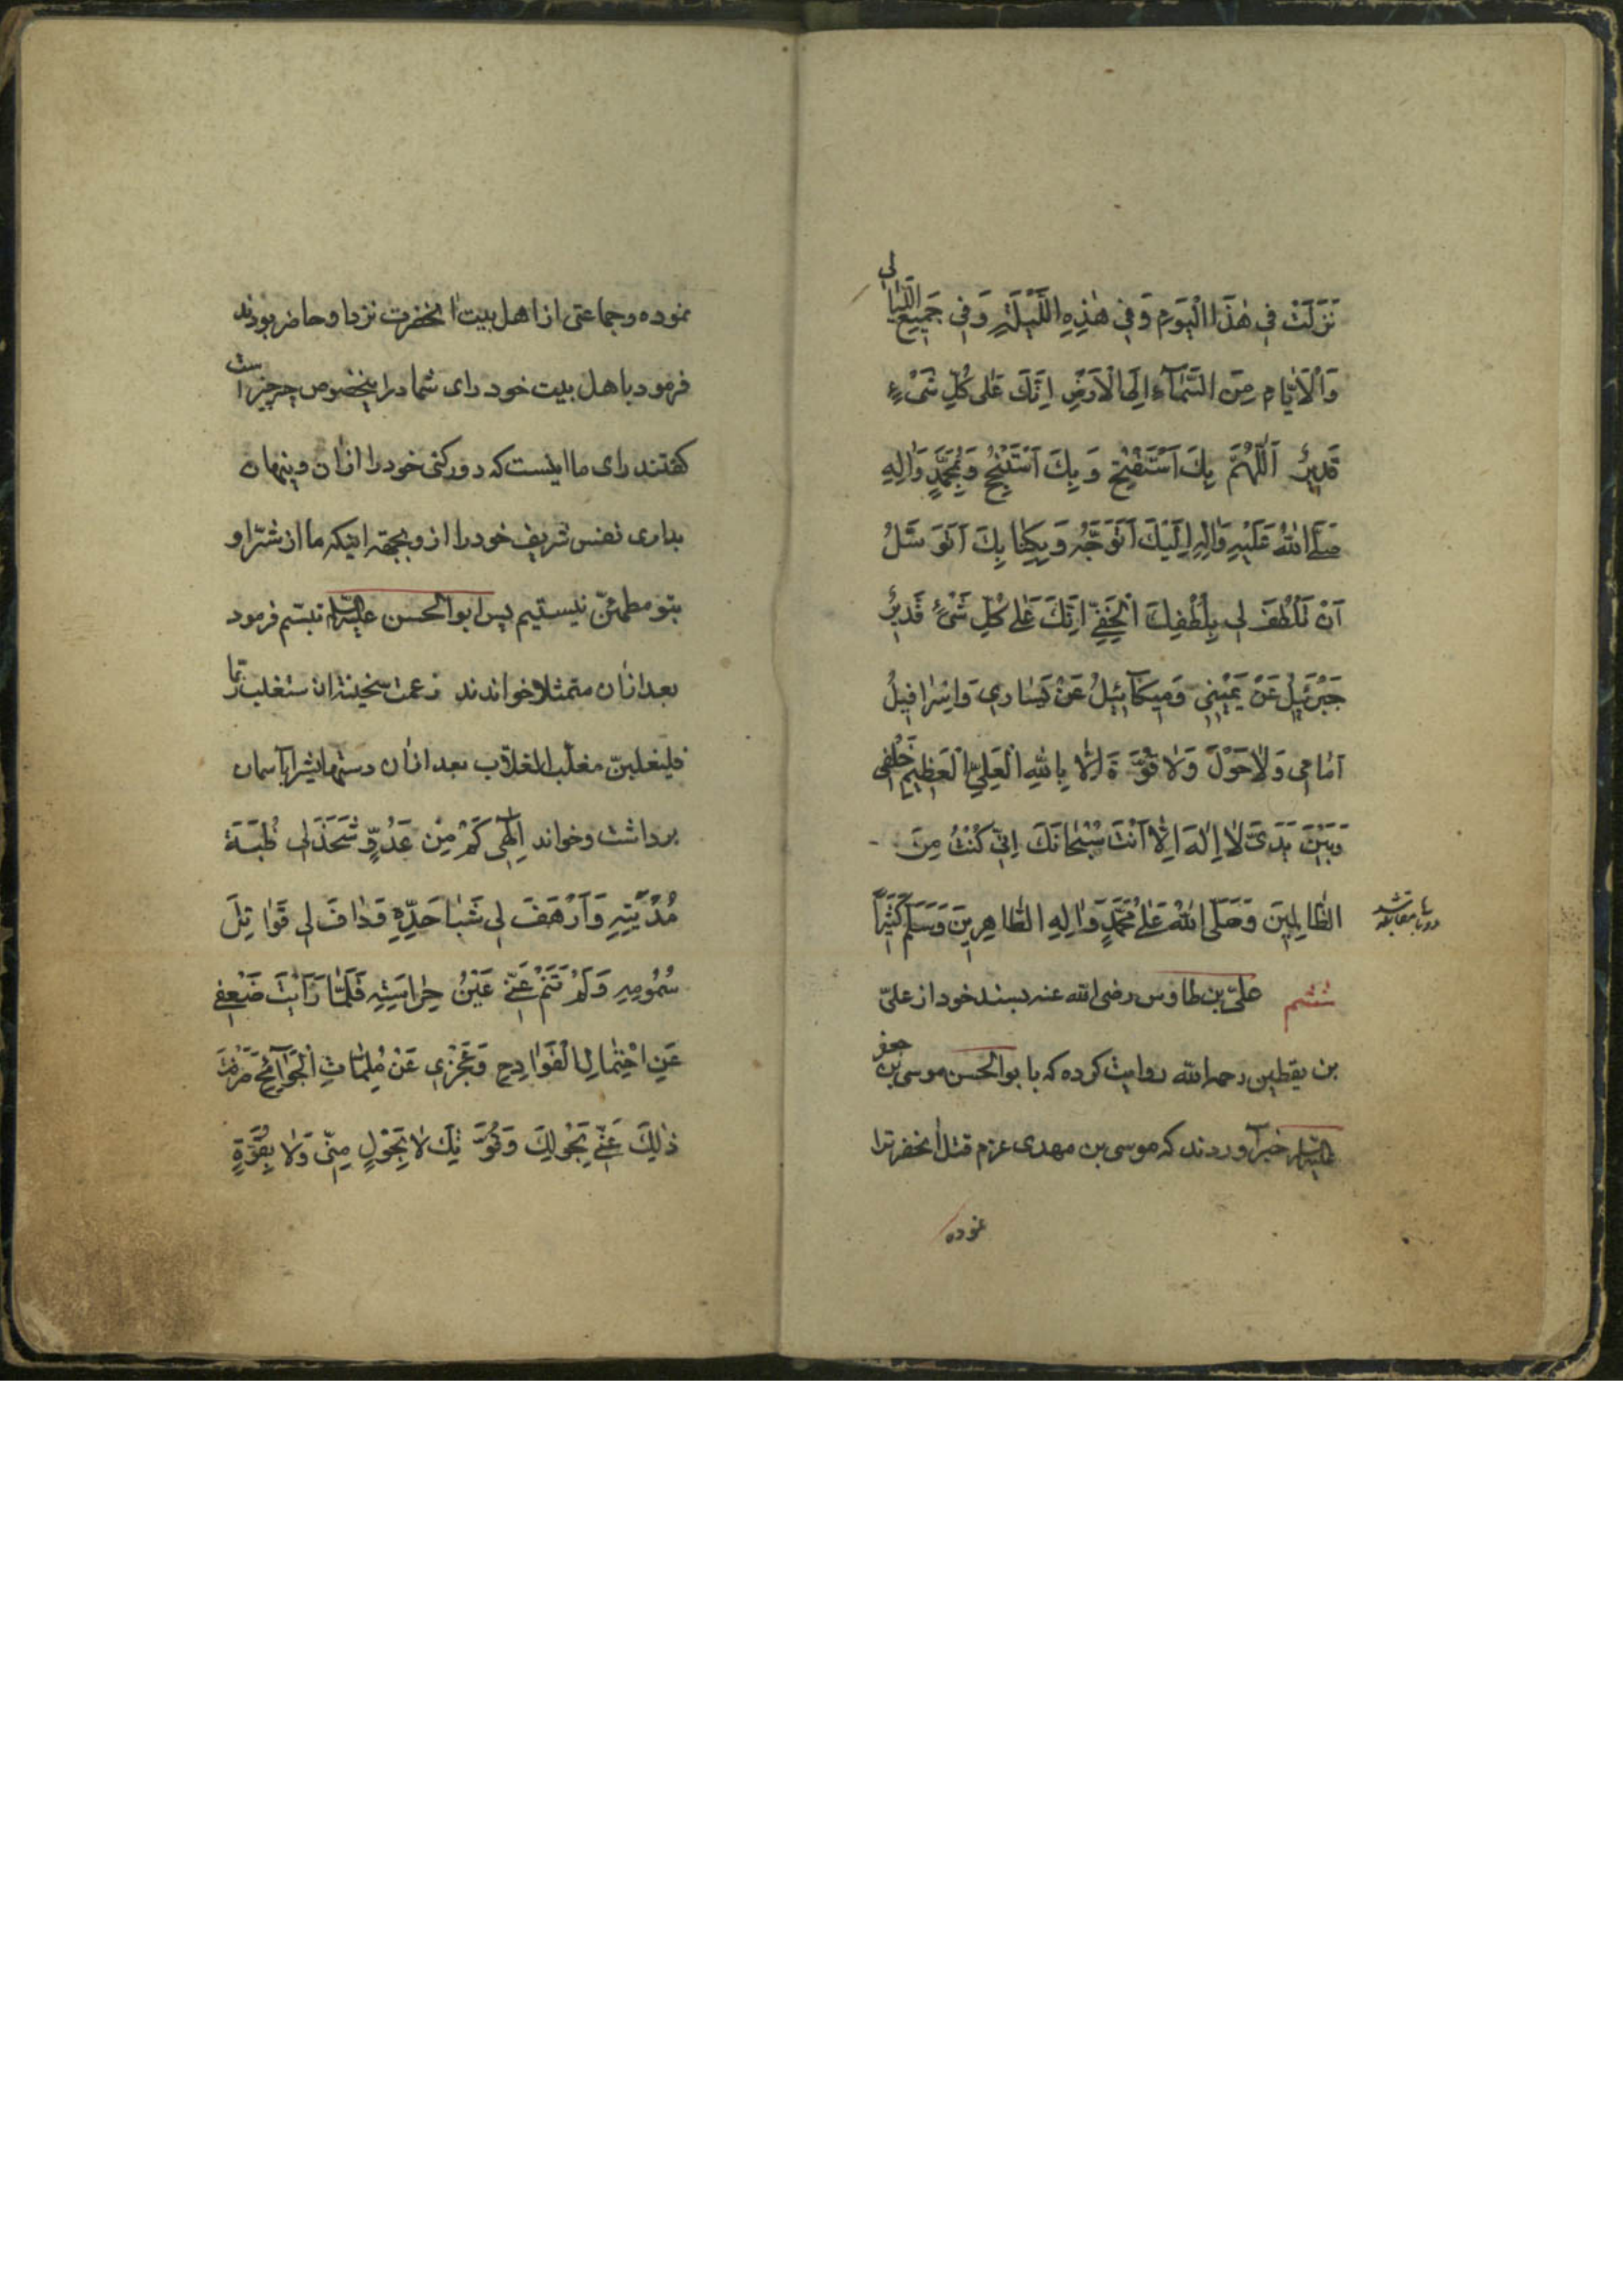 نَزَلَتْ فِي هٰذَا الْيَوْمِ وَفِي هٰذِهِ اللَّيْلَةِ وَفِي جَمِيعِ اللَّيَالِي
وَالْاَيَّامِ مِنَ السَّمَآءِ اِلَى الْاَرْضِ اِنَّكَ عَلٰى كُلِّ شَيْءٍ
قَدِيرٌ اَللّٰهُمَّ بِكَ اَسْتَفْتِحُ وَ بِكَ اَسْتَنْجِحُ وَبِمُحَمَّدٍ وَاٰلِهِ
صَلَّى اللهُ عَلَيْهِ وَاٰلِهِ اِلَيْكَ اَتَوَجَّهُ وَ بِكِتَابِكَ اَتَوَسَّلُ
اَنْ تَلْطُفَ لِي بِلُطْفِكَ الْخَفِيِّ اِنَّكَ عَلٰى كُلِّ شَيْءٍ قَدِيرٌ
جَبْرَئِيلُ عَنْ يَمِينِي وَمِيكَآئِيلُ عَنْ يَسَارِي وَاِسْرَافِيلُ
اَمَامِي وَلَا حَوْلَ وَلَا قُوَّةَ اِلَّا بِاللهِ الْعَلِيِّ الْعَظِيمِ خَلْفِي
وَبَيْنَ يَدَيَّ لَا اِلٰهَ اِلَّا اَنْتَ سُبْحَانَكَ اِنِّي كُنْتُ مِنَ
الظَّالِمِينَ وَصَلَّى اللهُ عَلٰى مُحَمَّدٍ وَاٰلِهِ الطَّاهِرِينَ وَسَلَّمَ كَثِيرًا
ششم علىّ بن طاوس رضى الله عنه بسند خود از علىّ
بن يقطين رحمه الله روايت كرده كه با بوالحسن موسى بن جعفر
عليه السلام خبر آوردند كه موسى بن مهدى عزم قتل آنحضرترا
نموده
نموده وجماعتى از اهل بيت آنحضرت نزد او حاضر بودند
فرمود با اهل بيت خود راى شما در اينخصوص چه چيز است
كفتند راى ما اينست كه دور كنى خود را از آن و پنهان
بدارى نفس شريف خود را از و بجهة اينكه ما از شرّ او
بتو مطمئنّ نيستيم پس ابوالحسن عليه السلام تبسّم فرمود
بعد از آن متمثلا خواندند زعمت سخينة ان ستغلب ربّها
فليغلبنّ مغلّب الغلّاب بعد از آن دستهايشرا بآسمان
برداشت وخواند اِلٰهِى كَمْ مِنْ عَدُوٍّ شَحَذَ لِى ظُبَةَ
مُدْيَتِهِ وَاَرْهَفَ لِى شَبَا حَدِّهِ وَدَافَ لِى قَوَاتِلَ
سُمُومِهِ وَلَمْ تَنَمْ عَنِّي عَيْنُ حِرَاسَتِهِ فَلَمَّا رَاَيْتَ ضَعْفِي
عَنِ احْتِمَالِ الْفَوَادِحِ وَعَجْزِي عَنْ مُلِمَّاتِ الْجَوَآئِحِ صَرَفْتَ
ذٰلِكَ عَنِّي بِحَوْلِكَ وَقُوَّتِكَ لَا بِحَوْلٍ مِنِّى وَلَا بِقُوَّةٍ